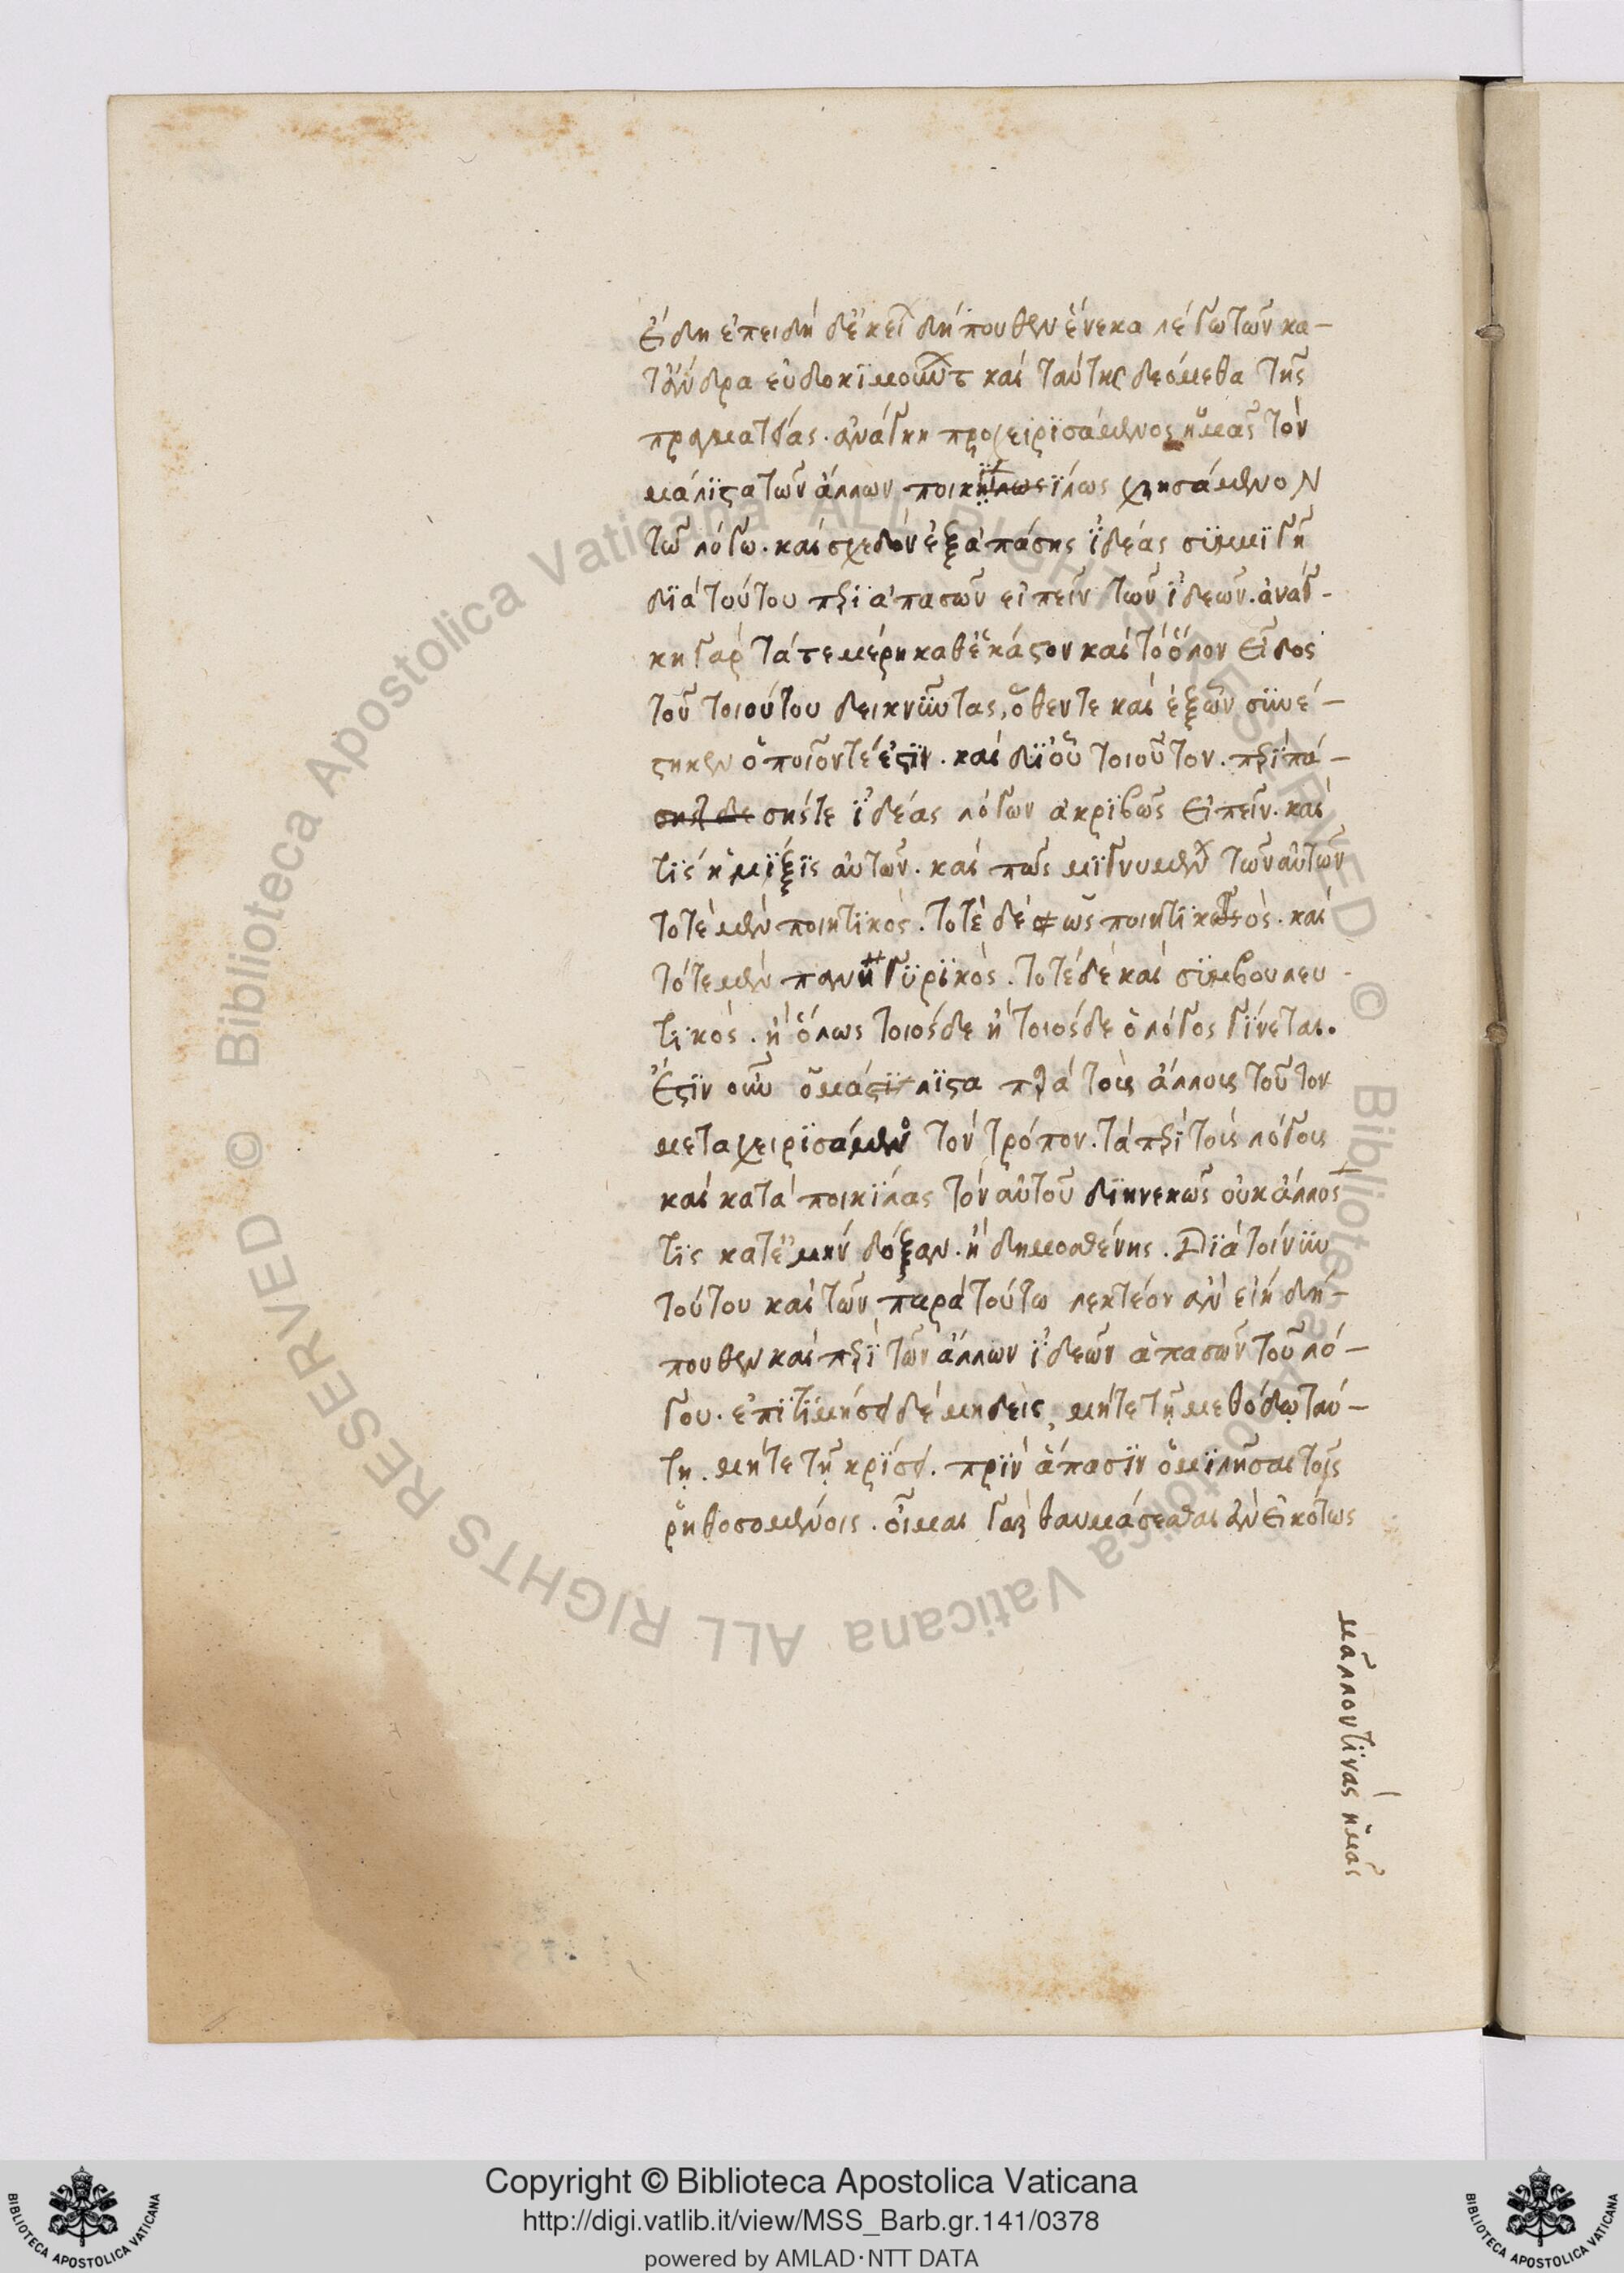 Εἴδη ἐπειδὴ δἐκεῖ δήπουθεν ἕνεκα λέγω τῶν κα-
τἄνδρα εὐδοκϊμοῦντ καὶ ταύτης δεόμεθα τῆς
πραγματείας. ἀνάγκη προχειρϊσάμενος ἡμᾶς τὸν
μάλϊστα τῶν ἄλλων ποικϊλως ΐλως χρησάμενοΝ
τῶ λόγω. καὶ σχεδὸν ἐξ ἁπάσης ϊδέας σϋμμϊγῆ
δϊὰ τούτου περὶ ἁπασῶν εἰπεῖν τῶν ϊδεῶν. ἀναγ-
κη γὰρ τά τε μέρη καθἑκάστον καὶ τὸ ὅλον εἶδος
τοῦ τοιούτου δεικνϋντας, ὅθεν τε καὶ ἐξ ὧν σϋνέ-
στηκεν ὁποῖον τέ ἐστϊν. καὶ δϊ οὗ τοιοῦτον. περὶ πά-
σης δε σης τε ϊδέας λόγων ἀκρϊβῶς εἰπεῖν. καὶ
τϊς ἡ μϊξϊς αὐτῶν. καὶ πῶς μϊγνυμεν τῶν αὐτῶν
τοτὲ μὲν ποιητϊκὸς. τοτὲ δὲ ὡς ποιητϊκὸς. καὶ
τότε μὲν πανηγϋρϊκὸς. τοτὲ δὲ καὶ σϋμβουλευ-
τϊκὸς. ἢ ὅλως τοιόσδε ἢ τοιόσδε ὁ λόγος γΐνεται.
Ἔστϊν οὖν ὁ μάστϊ λϊστα παρὰ τοὺς ἄλλους τοῦτον
μεταχειρϊσάμενος τὸν τρόπον. τὰ περὶ τοὺς λόγους
καὶ κατὰ ποικϊλας τὸν αὐτοῦ δϊηνεκῶς οὐκ ἄλλος
τϊς κατἐμὴν δόξαν. ἢ δημοσθένης. Δϊὰ τοίνϋν
τούτου καὶ τῶν παρὰ τούτω λεκτέον ἂν εἴη δή-
πουθεν καὶ περὶ τῶν ἄλλων ϊδεῶν ἁπασῶν τοῦ λό-
γου. ἐπϊτϊμήσει δὲ μηδεὶς, μήτε τῇ μεθόδῳ ταύ-
τῃ. μήτε τῇ κρΐσει. πρϊν ἅπασϊν ὁμϊλῆσαι τοῖς
ῥηθοσομένοις. οἶμαι γὰρ θαυμάσεσθαι ἂν εἰκότως
μᾶλλον τϊνὰς ἡμᾶς
Copyright © Biblioteca Apostolica Vaticana
http://digi.vatlib.it/view/MSS_Barb.gr.141/0378
powered by AMLAD·NTT DATA